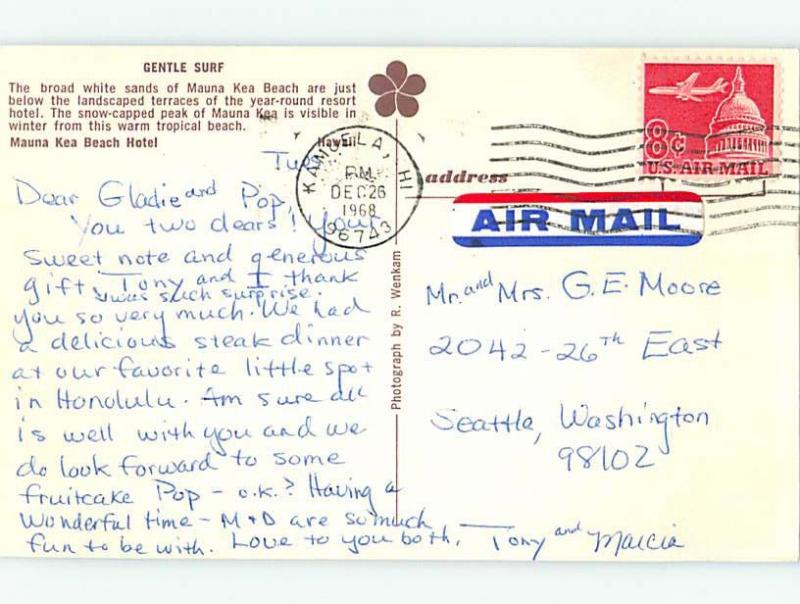 GENTLE SURF
The broad white sands of Mauna Kea Beach are just
below the landscaped terraces of the year-round resort
hotel. The snow-capped peak of Mauna Kea is visible in
winter from this warm tropical beach.
Mauna Kea Beach Hotel Hawaii
Tues
Dear Gladie and Pop,
You two dears! Your
sweet note and generous
gift, Tony and I thank
was such surprise.
you so very much. We had
a delicious steak dinner
at our favorite little spot
in Honolulu. Am sure all
is well with you and we
do look forward to some
fruitcake Pop - o.k.? Having a
wonderful time - M + D are so much
fun to be with. Love to you both, Tony and Marcia
Photograph by R. Wenkam
KAMUELA, HI
P.M.
DEC 26
1968
96743
address
8c
U.S. AIR MAIL
AIR MAIL
Mr. and Mrs. G. E. Moore
2042 - 26TH East
Seattle, Washington
98102